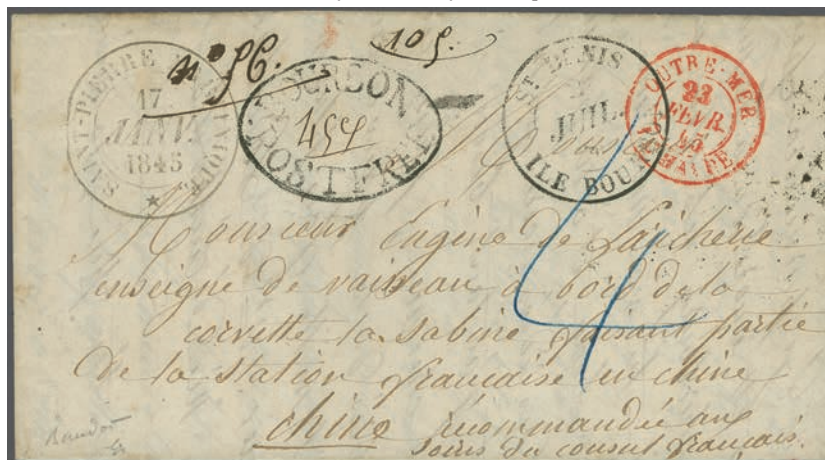 SAINT-PIERRE MARTINIQUE
17
JANV.
1845
n° 56.
105.
BOURBON
POST FREE
ST DENIS
JUIL.
ILE BOURBON
OUTRE-MER
23
FEVR.
45
4
Monsieur Eugène de
enseigne de vaisseau à bord de la
corvette la Sabine faisant partie
De la station française en chine
chine recommandée aux
soins du consul français.